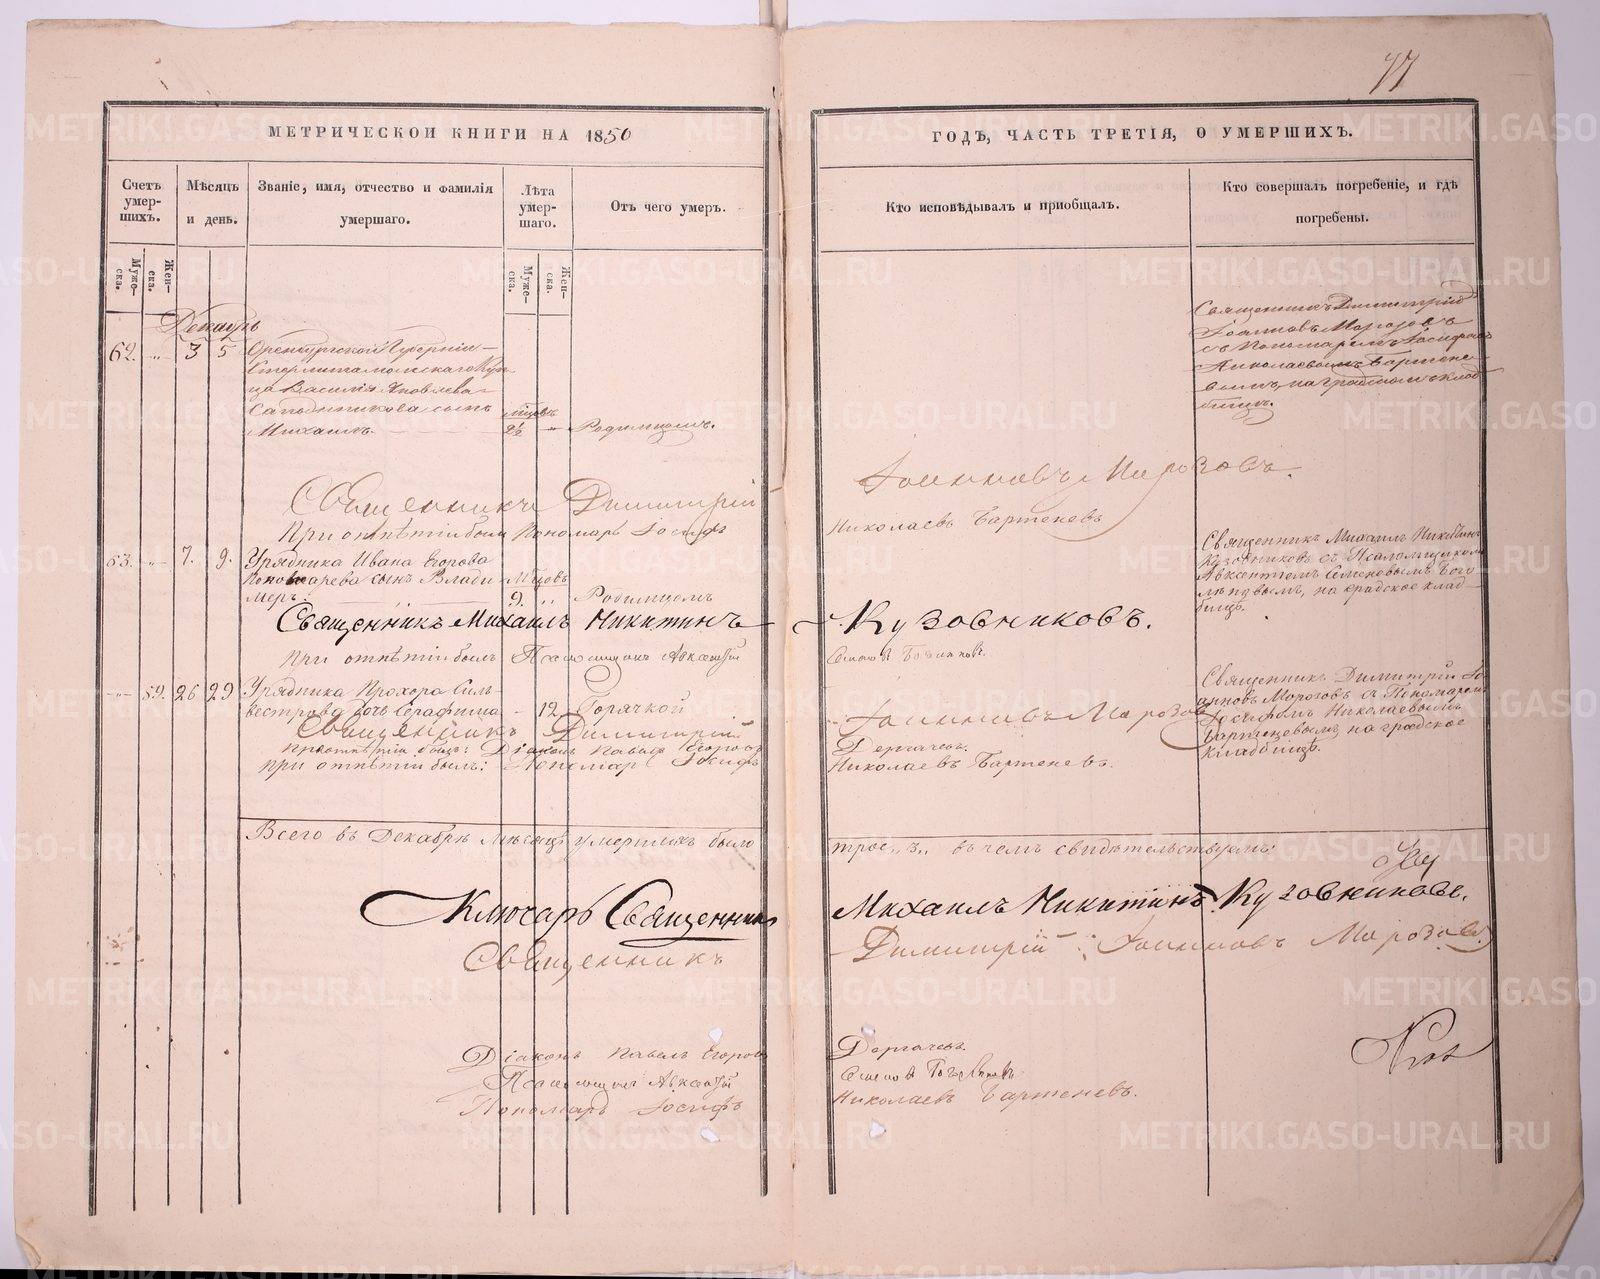 77
МЕТРИЧЕСКОЙ КНИГИ НА 1850
ГОДЪ, ЧАСТЬ ТРЕТІЯ, О УМЕРШИХЪ.
Счетъ умер-
шихъ.
Муже-
ска.
Жен-
ска.
Мѣсяцъ
и день.
Званіе, имя, отчество и фамилія
умершаго.
Лѣта
умер-
шаго.
Муже-
ска.
Жен-
ска.
Отъ чего умеръ.
Кто исповѣдывалъ и приобщалъ.
Кто совершалъ погребеніе, и гдѣ
погребены.
Декабрь
62. „ 3 5
Оренбургской Губерніи
Стерлитамакскаго Куп
ца Василія Яковлева
Сапожникова сынъ
Михаилъ.
мѣсцовъ
2½ „ Родимцомъ.
Священникъ Димитрій
Іоанновъ Морозовъ
съ Пономаремъ Іосифомъ
Николаевымъ Бартене-
вымъ, на градскомъ клад
бищѣ.
Священникъ Димитрій Іоанновъ Морозовъ.
При отпѣтіи былъ Пономарь Іосифъ Николаевъ Бартеневъ
63. „ 7. 9.
Урядника Ивана Егорова
Пономарева сынъ Влади
меръ.
М-цовъ
9. „ Родимцомъ
Священникъ Михаилъ Никитинъ
Кузовниковъ съ Псаломщикомъ
Авксентіемъ Семеновымъ Бого
лѣповымъ, на градское клад-
бищѣ.
Священникъ Михаилъ Никитинъ Кузовниковъ.
При отпѣтіи былъ Псаломщикъ Авксентій
„ 59. 26 29
Урядника Прохора Силь-
вестрова дочь Серафима
„ 12. Горячкой
Священникъ Димитрій Іо-
анновъ Морозовъ съ Пономаремъ
Іосифомъ Николаевымъ
Бартеневымъ, на градское
Кладбищѣ.
Священникъ Димитрій Іоанновъ Морозовъ
При отпѣтіи былъ: Діаконъ Павелъ Егоровъ Дергачевъ.
При отпѣтіи былъ: Пономарь Іосифъ Николаевъ Бартеневъ.
Всего въ Декабрѣ мѣсяцѣ умершихъ было трое „3„ въ чемъ свидѣтельствуемъ:
Ключарь Священникъ Михаилъ Никитинъ Кузовниковъ.
Священникъ Димитрій Іоанновъ Морозовъ.
Діаконъ Павелъ Егоровъ Дергачевъ.
Псаломщикъ Авксентій
Пономарь Іосифъ Николаевъ Бартеневъ.
METRIKI.GASO-URAL.RU